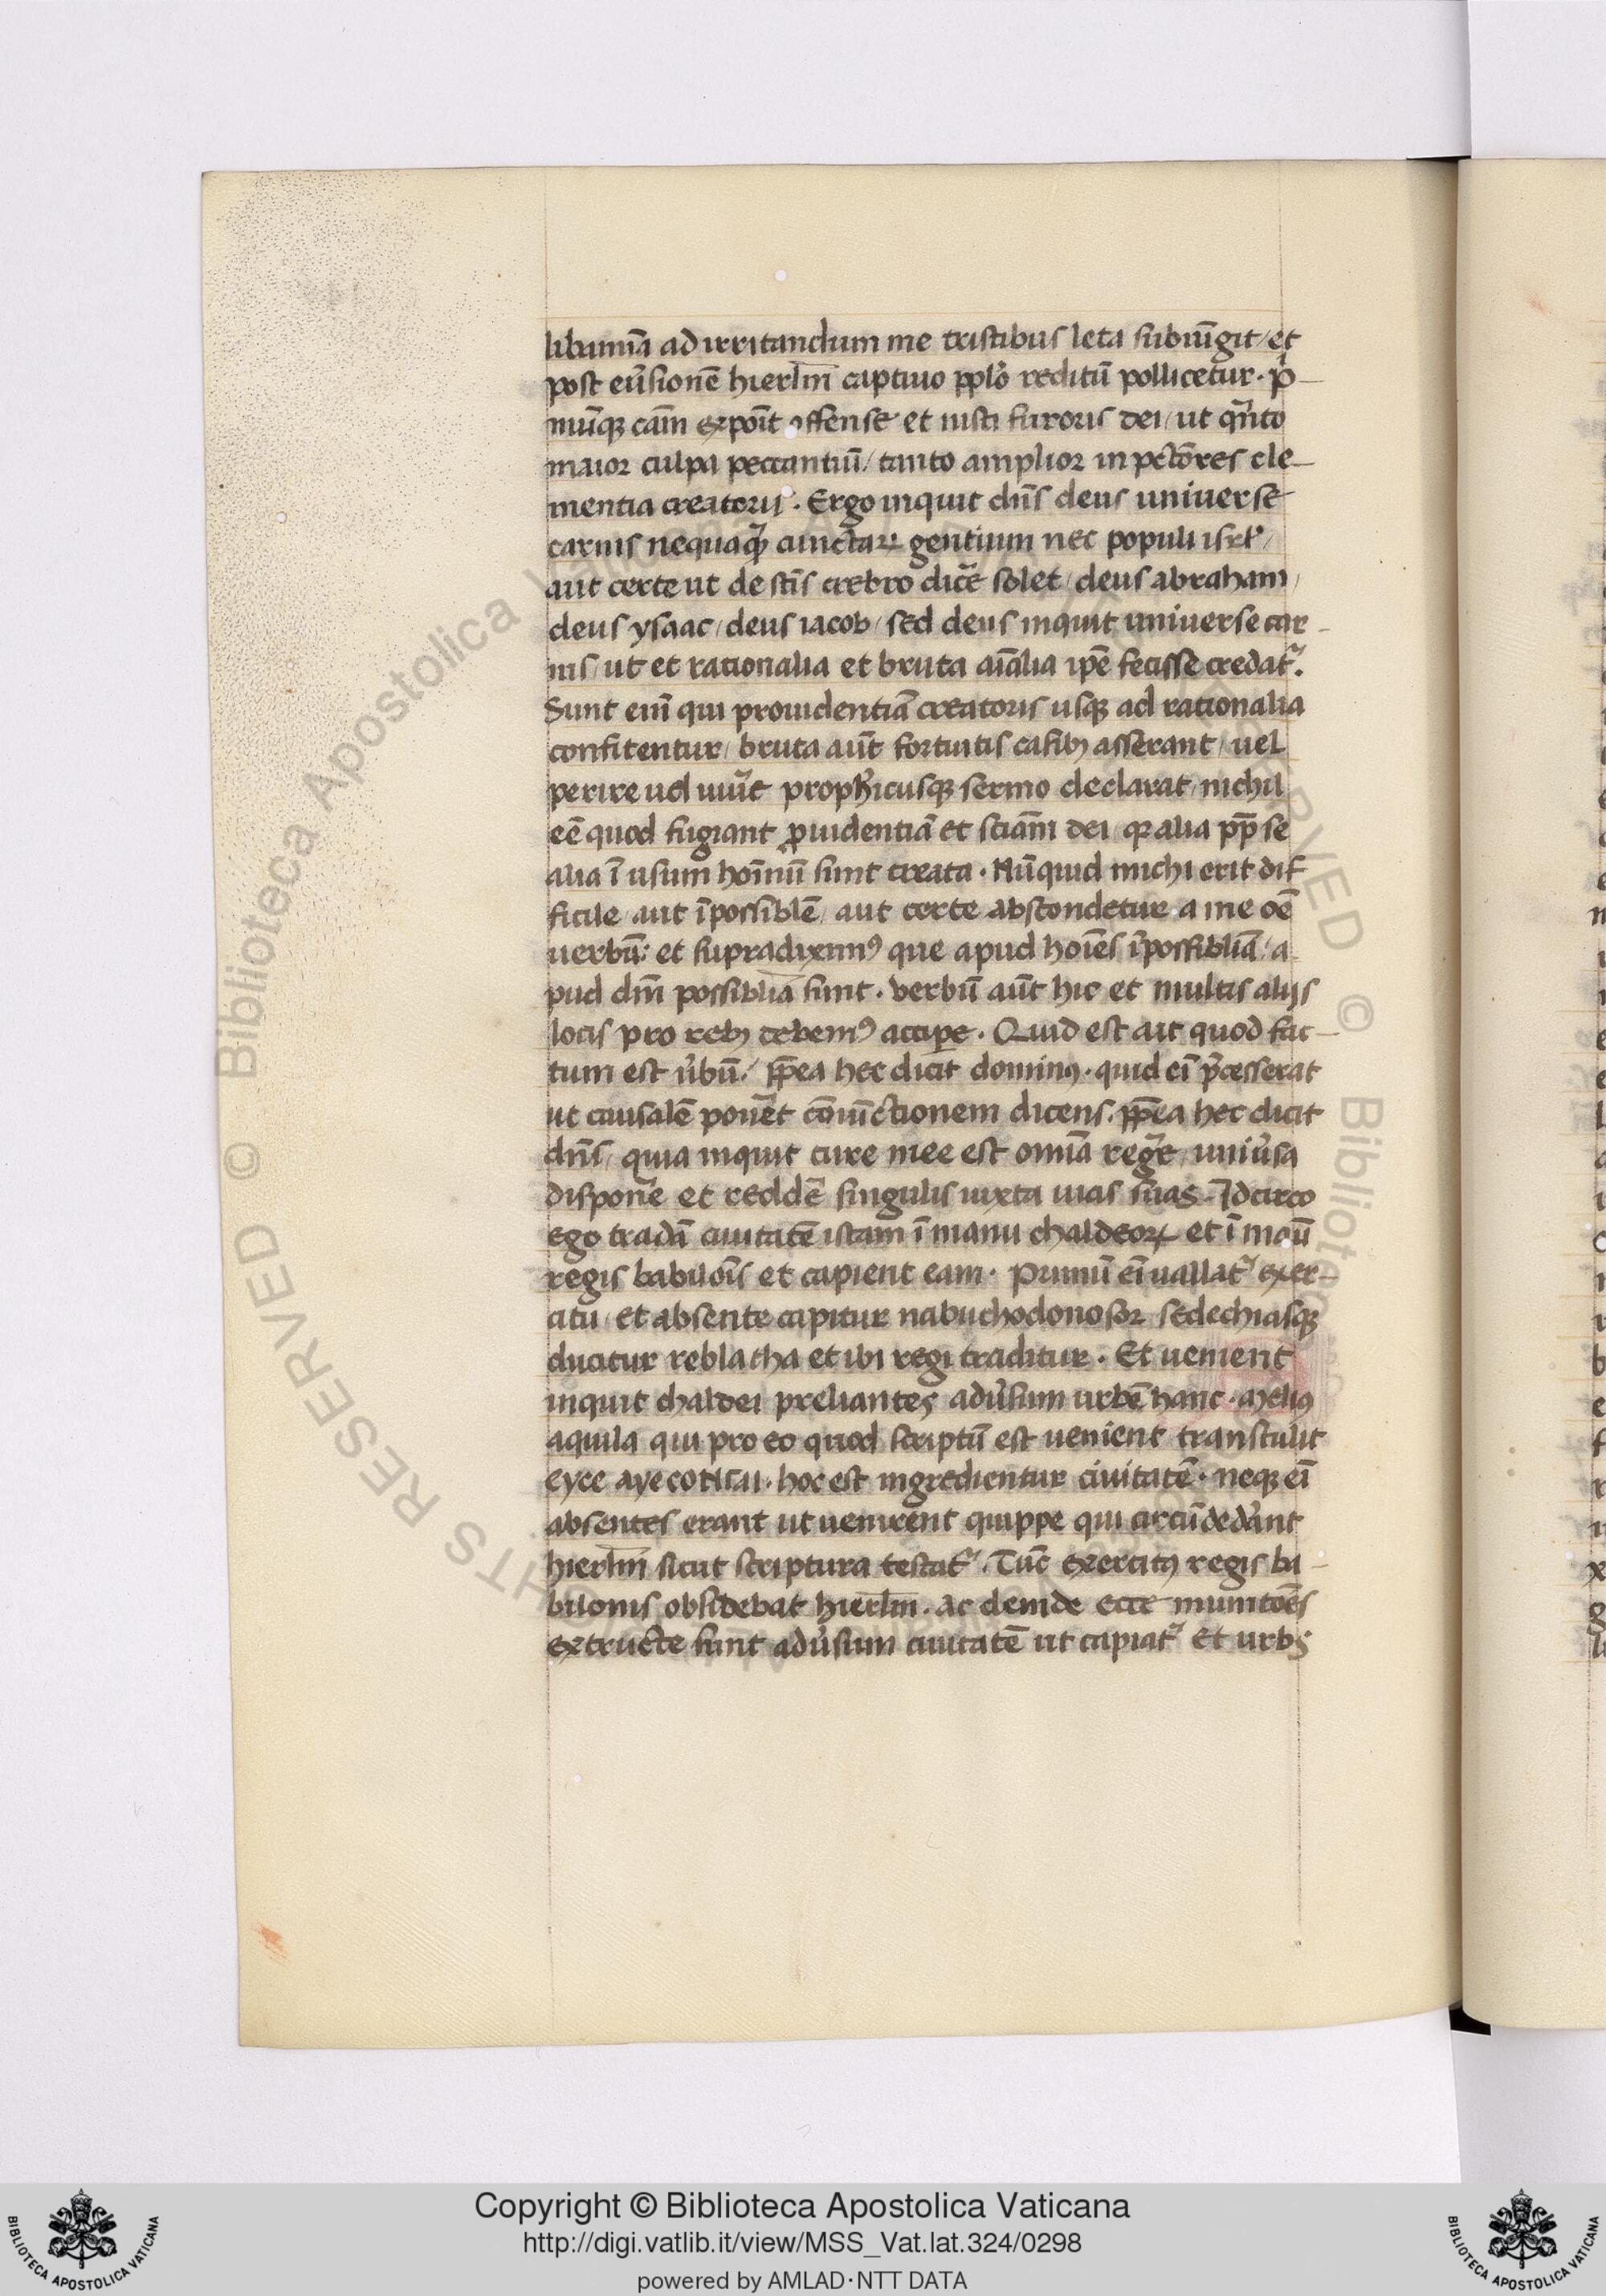 libamīa ad irritandum me tristibus leta subiūgit / et
post eūsionē hierłm captiuo pplo reditū pollicetur · p
mūqꝫ cām exponīt offense et iusti furoris dei / ut qnto
maior culpa peccantiū / tanto amplior in pctores cle
mentia creatoris · Ergo inquit dn̄s deus uniuerse
carnis nequaqꝫ cunctaꝝ gentium nec populi isrl /
aut certe ut de sc̄is crebro dice solet / deus abraham /
deus ysaac / deus iacob / sed deus inquit uniuerse car
nis / ut et rationalia et bruta aīalia ip̄e fecisse credat᷑.
Sunt eni qui prouidentiā creatoris usqꝫ ad rationalia
confitentur / bruta aūt fortuitis casibꝫ asserant / uel
perire uel uiu͛e prophicusqꝫ sermo declarat / nichil
eē quod fugiant ꝓuidentiā et sciam dei / qꝫ alia pp̄ se
alia ī usum hoīnū sunt creata · Nūquid michi erit dif
ficile / aut īpossiblē / aut certe abscondetur a me oē
uerbū: et supradiximꝰ que apud hoīes īpossiblīa / a
pud dm̄ possiblīa sunt · verbū aūt hic et multis alijs
locis pro rebꝫ debemꝰ accipe · Quid est ait quod fac
tum est u͛bū / ꝓp̄ea hec dicit dominꝰ · quid eī p͛cesserat
ut causalē ponēt cōiūctionem dicens · ꝓp̄ea hec dicit
dn̄s / quia inquit cure mee est omīa reg͛e / uniu͛sa
dispon͛e et reddē singulis iuxta uias suas · Idcirco
ego tradā ciuitatē istam ī manu chaldeoꝝ et ī manū
regis babiloīs et capient eam · Primū eī uallat᷑ exer
citu / et absente capitur nabuchodonosor sedechiasqꝫ
ducitur reblatha et ibi regi traditur · Et uenient
inquit chaldei preliantes adu͛sum urbē hanc ·
aquila qui pro eo quod scriptū est uenient transtulit
hoc est ingredientur ciuitatē · neqꝫ eī
absentes erant ut uenirent quippe qui circūded͛ant
hierłm sicut scriptura testat᷑ · Tūc exercitꝰ regis ba
bilonis obsidebat hierłm · ac deinde ecce munitōes
extructe sunt adu͛sum ciuitatē ut capiat᷑ Et urbs